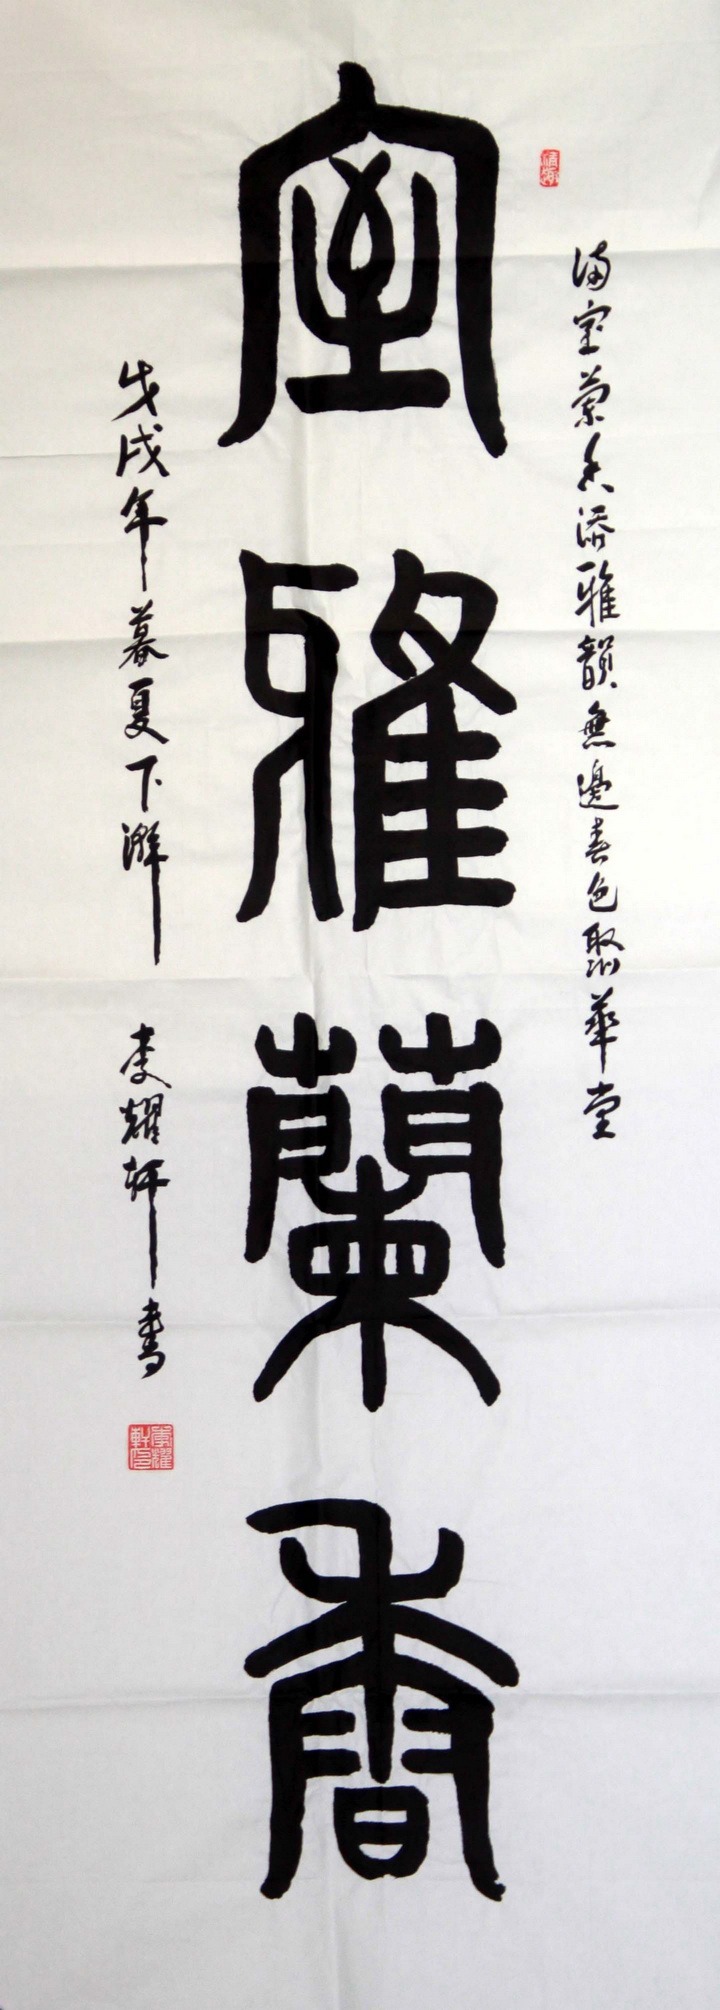 室雅蘭香
满室蘭香添雅韻無邊春色聚華堂
戊戌年暮夏下澣 李耀軒書
李耀軒印